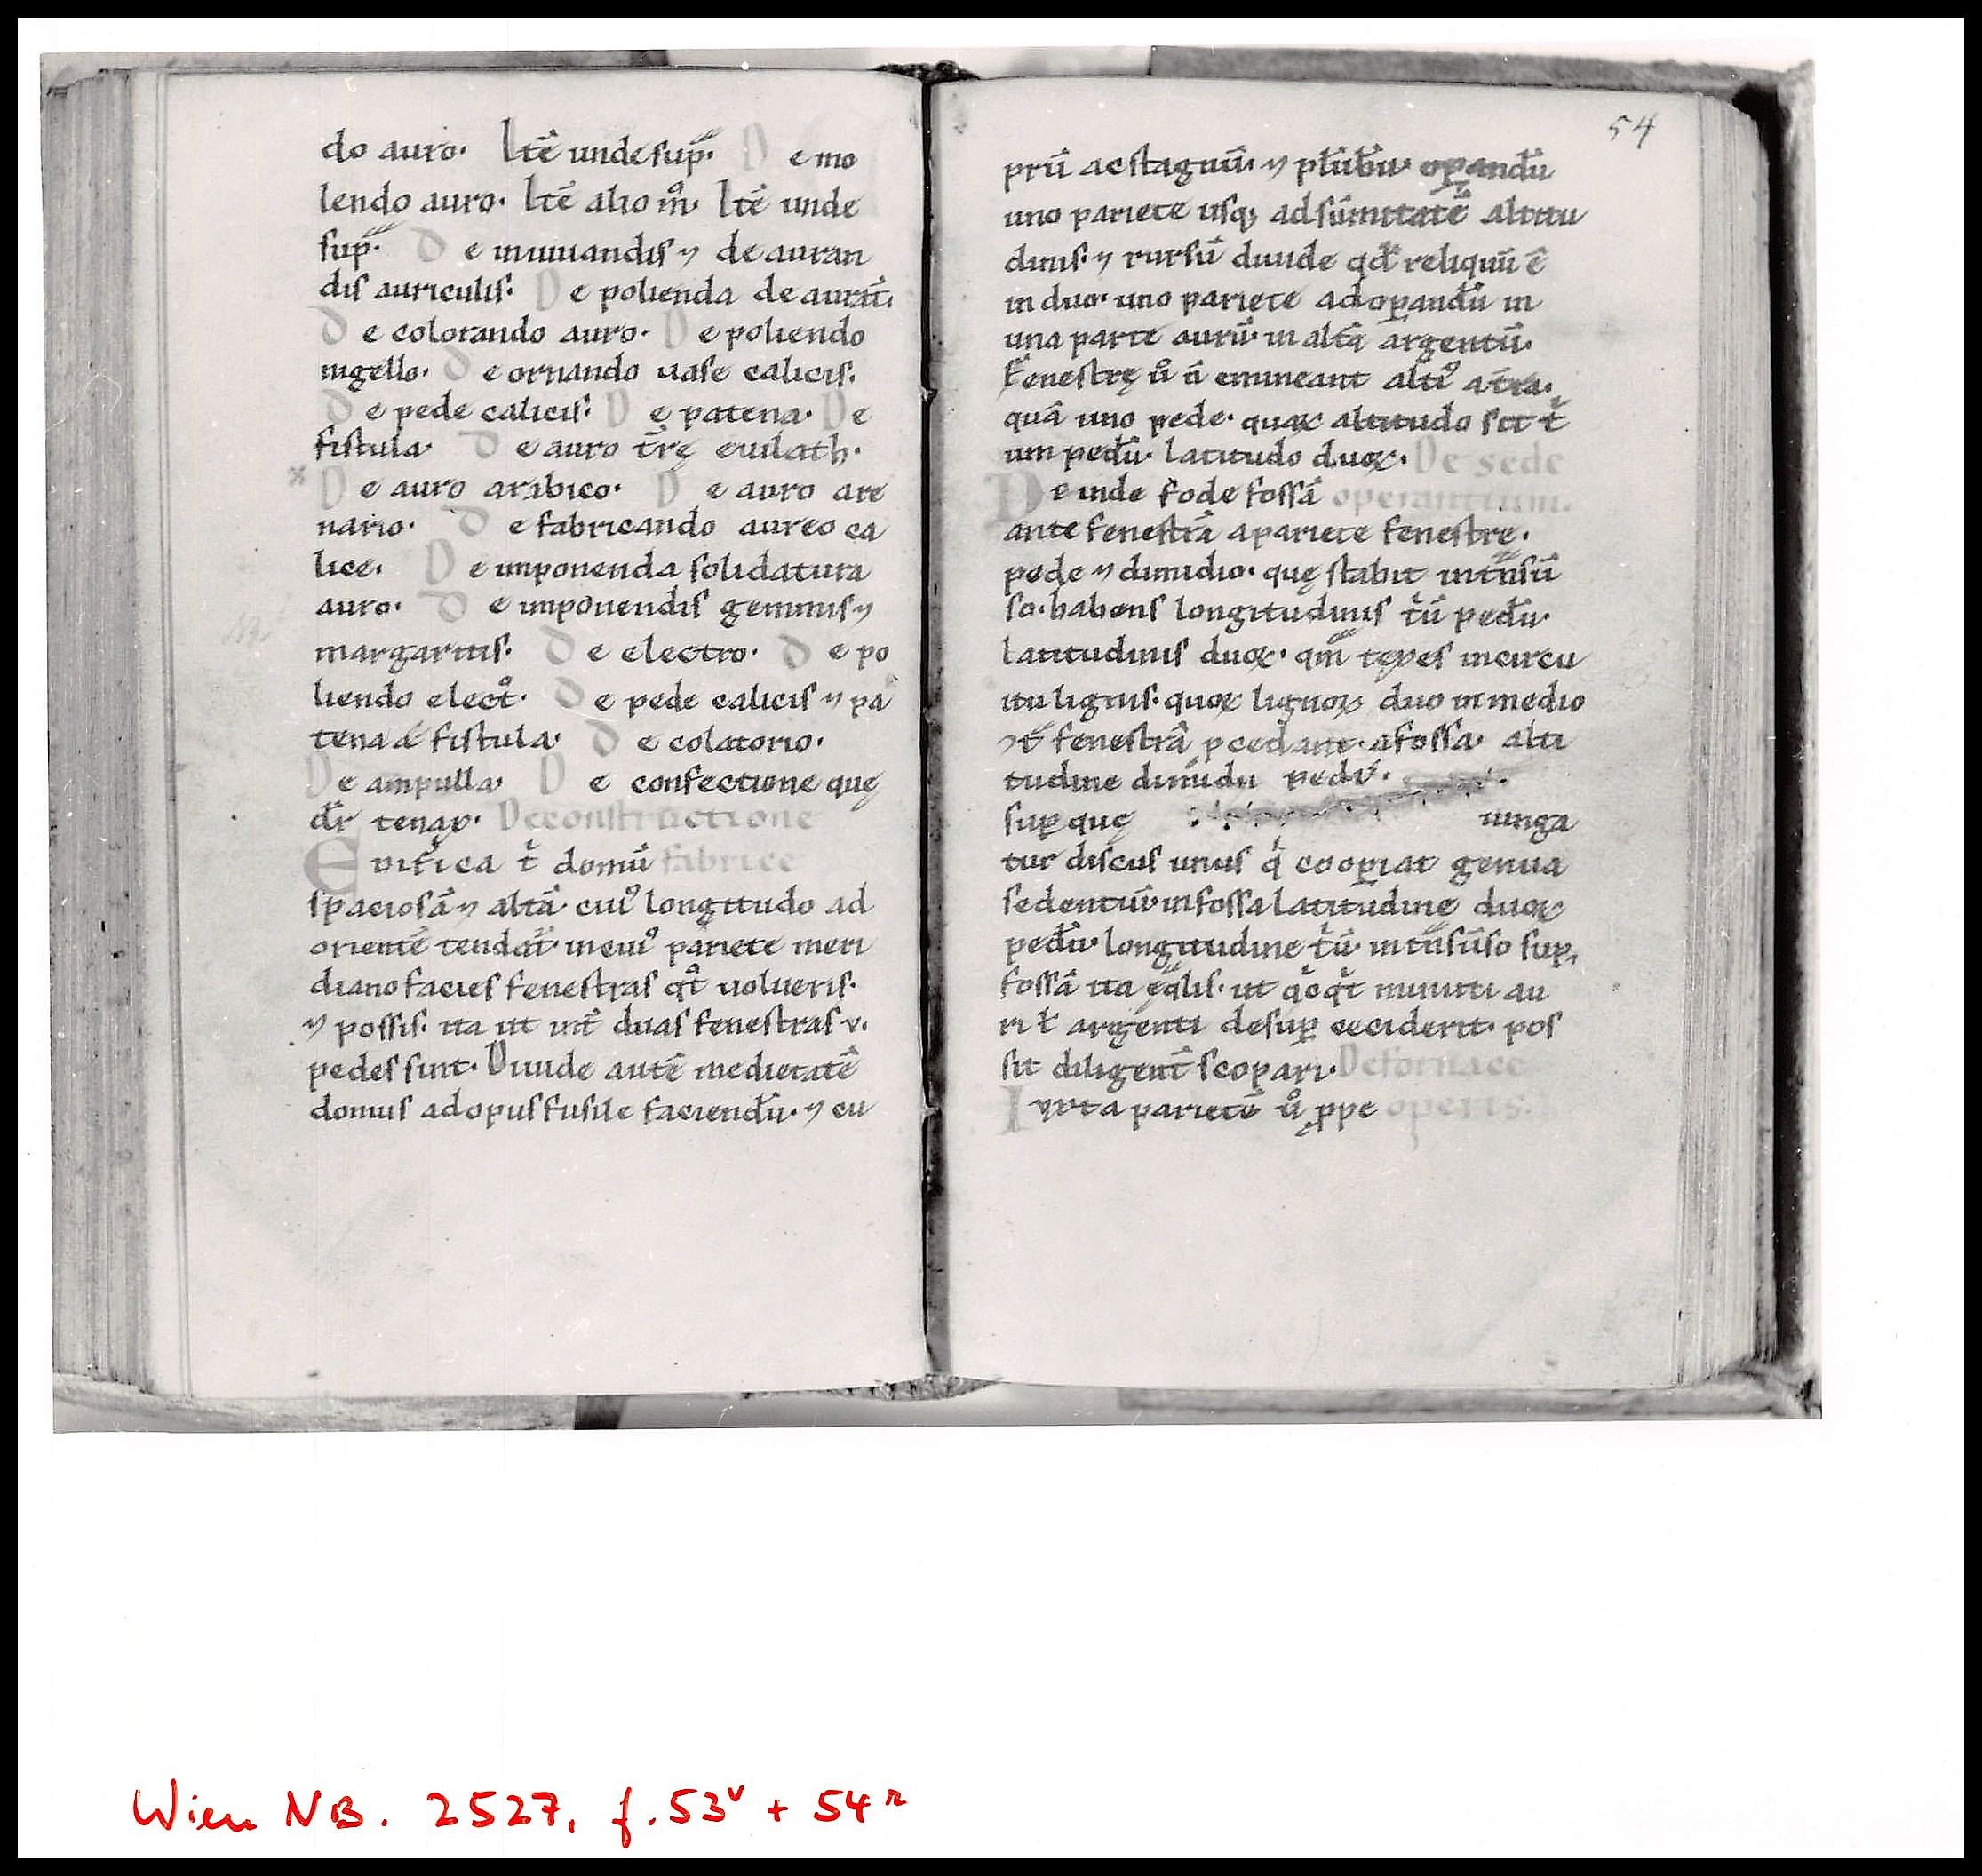 do auro. Itē unde sup̄. De mo
lendo auro. Itē alio m̊. Itē unde
sup̄. De inuiuandis ⁊ deauran
dis auriculis. De polienda deauraī.
De colorando auro. De poliendo
nigello. De ornando uase calicis.
De pede calicis. De patena. De
fistula. De auro t̄rę euilath.
De auro arabico. De auro are
nario. De fabricando aureo ca
lice. De imponenda solidatura
auro. De imponendis gemmis ⁊
margaritis. De electro. De po
liendo elect̊. De pede calicis ⁊ pa
tena a fistula. De colatorio.
De ampulla. De confectione quę
dr̄ tenax. De constructione
Edifica t̄ domū fabrice
spaciosā ⁊ altā cui⁹ longitudo ad
orientē tendat̄. in cui⁹ pariete meri
diano facies fenestras qͦt uolueris.
⁊ possis. ita ut int̄ duas fenestras v.
pedes sint. Diuide autē medietatē
domus ad opus fusile faciendū. ⁊ cu
54
prū ac stagnū. ⁊ plūbū. oꝑandū
uno pariete usqꝫ ad sūmitatē altitu
dinis. ⁊ rursū diuide qd̄ reliquū ē
in duo. uno pariete ad oꝑandū in
una parte aurū. in altā argentū.
Fenestrę ů n̄ emineant alti⁹ a t̄ra.
quā uno pede. quaꝝ altitudo sit t̄
um pedū. latitudo duoꝝ. De sede
Deinde fode fossā operantium.
ante fenestrā a pariete fenestre.
pede ⁊ dimidio. quę stabit in tn̄sū
so. habens longitudinis tⁱū pedū.
latitudinis duoꝝ. qm̄ teges in circu
itu lignis. quoꝝ lignoꝝ duo in medio
⁊t̄ fenestrā p̄cedant. a fossa. alti
tudine dimidii pedis.
suꝑ quę iunga
tur discus unus qⁱ cooꝑiat genua
sedentiū in fossa latitudinę duoꝝ
pedū. longitudine tⁱū. in tn̄sūso suꝑ
fossā ita ęq̄lis. ut qͥcqͥd minuti au
ri t̄ argenti desuꝑ ceciderit. pos
sit diligent̄ scopari. De fornace
Iuxta parietē ů ꝓpe operis.
Wien NB. 2527, f. 53ᵛ + 54ʳ